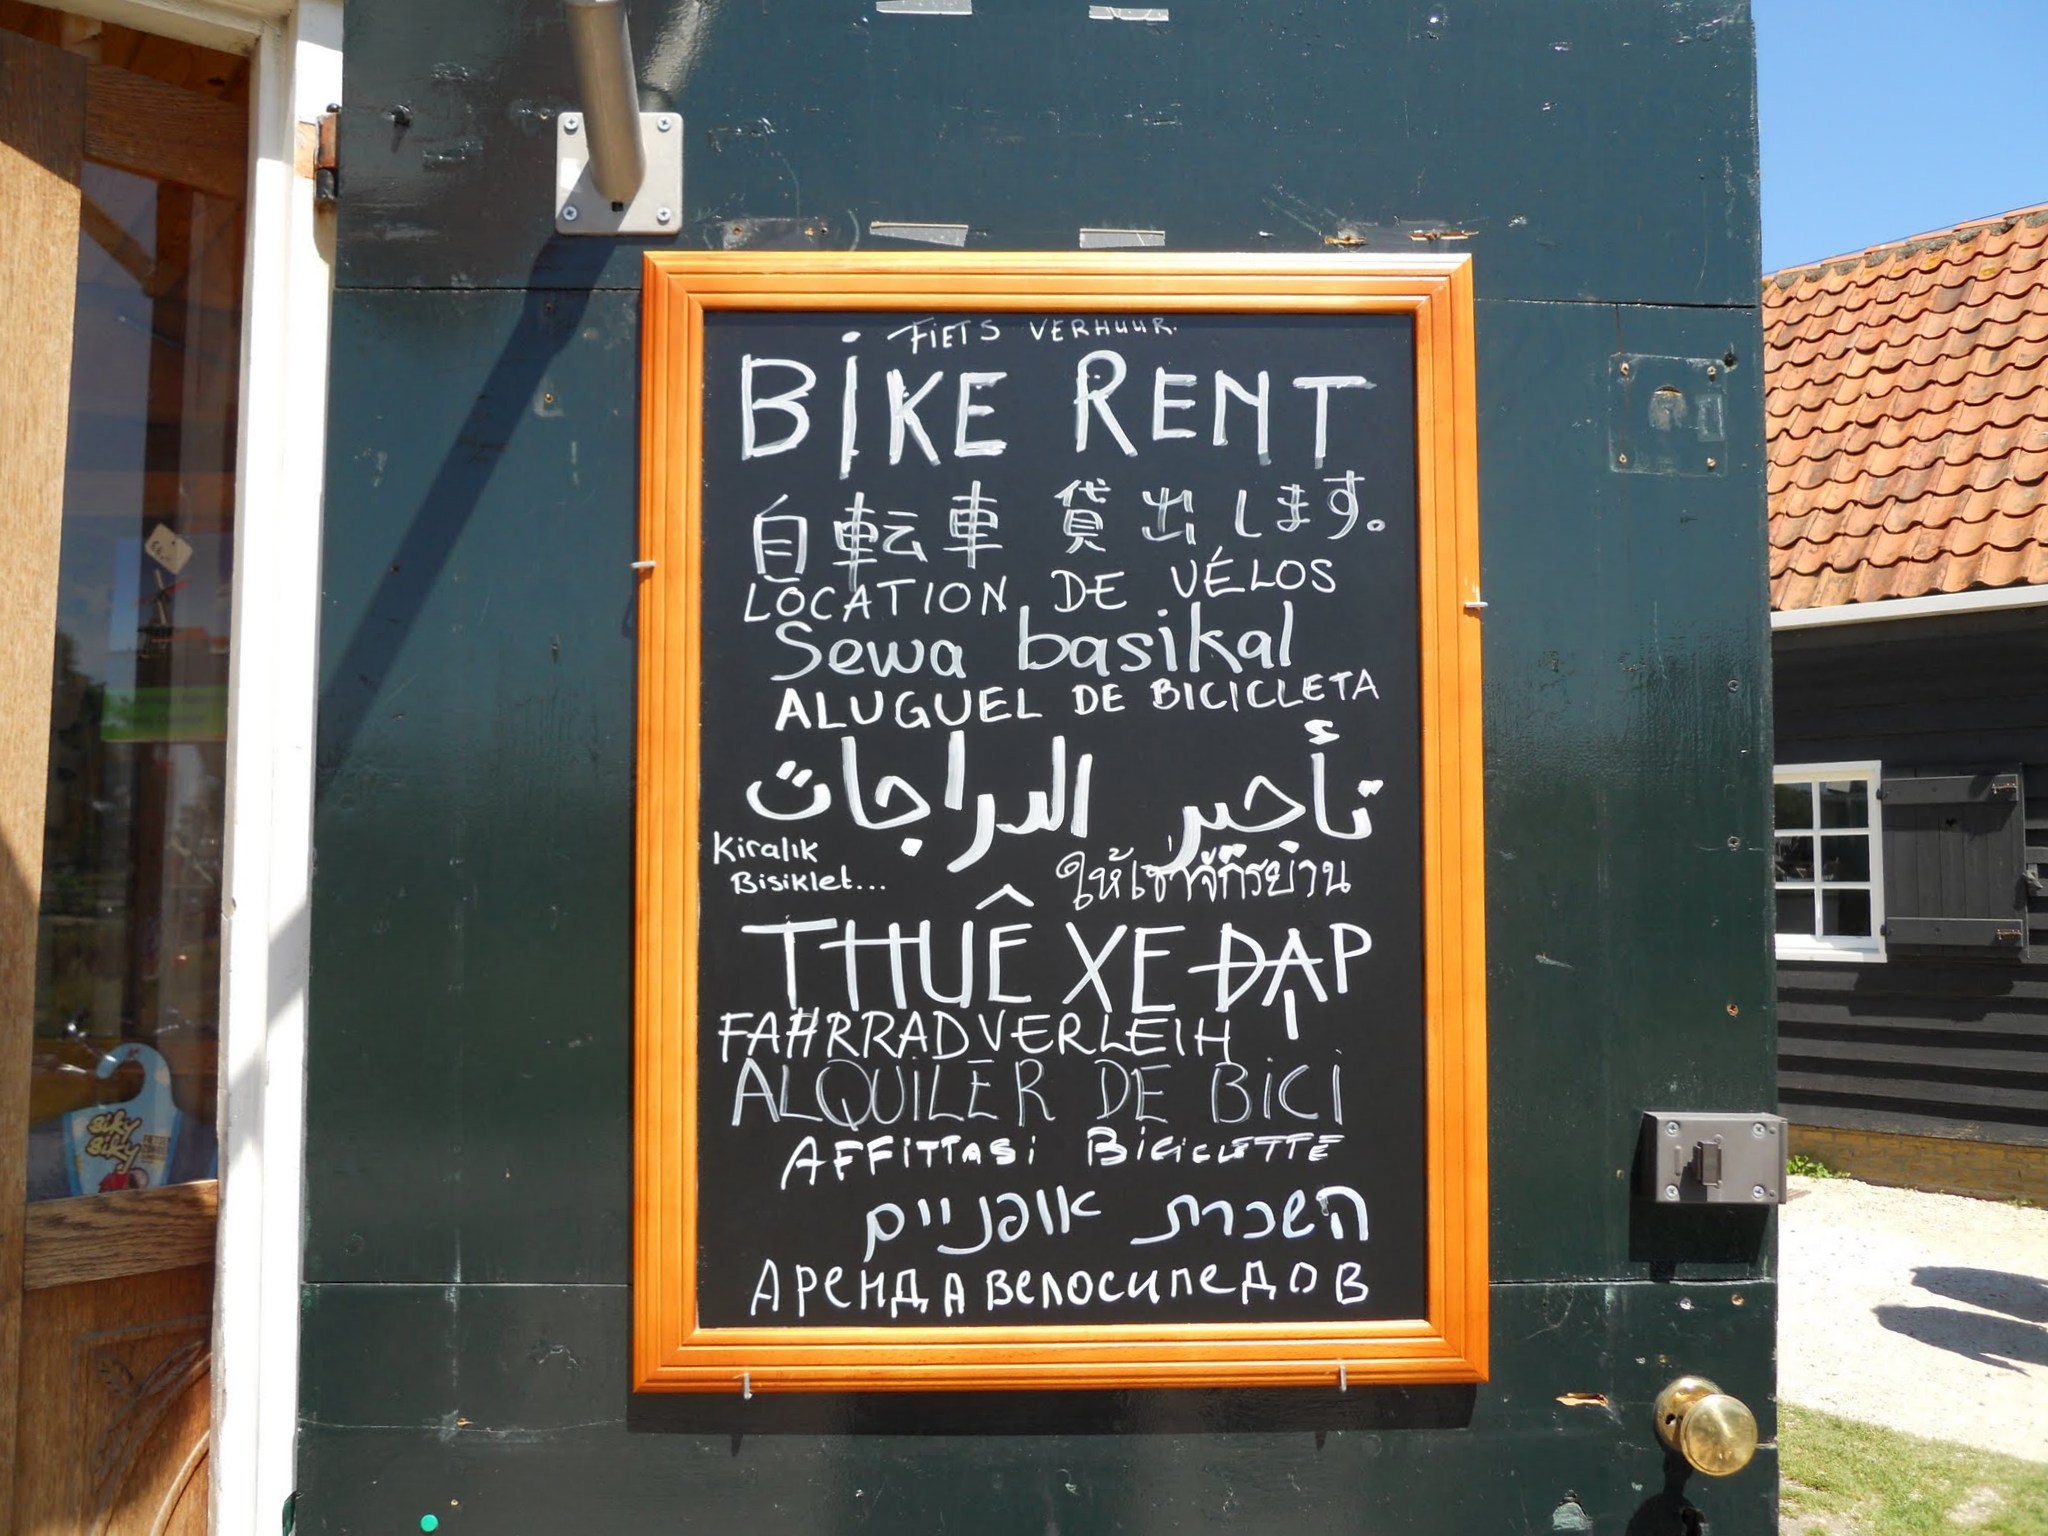 FIETS VERHUUR.
BIKE RENT
自転車 貸出します。
LOCATION DE VÉLOS
Sewa basikal
ALUGUEL DE BICICLETA
تأجير الدراجات
Kiralık
Bisiklet...
ให้เช่าจักรยาน
THUÊ XE ĐẠP
FAHRRADVERLEIH
ALQUILER DE BICI
AFFITTASI BICICLETTE
השכרת אופניים
Аренда велосипедов